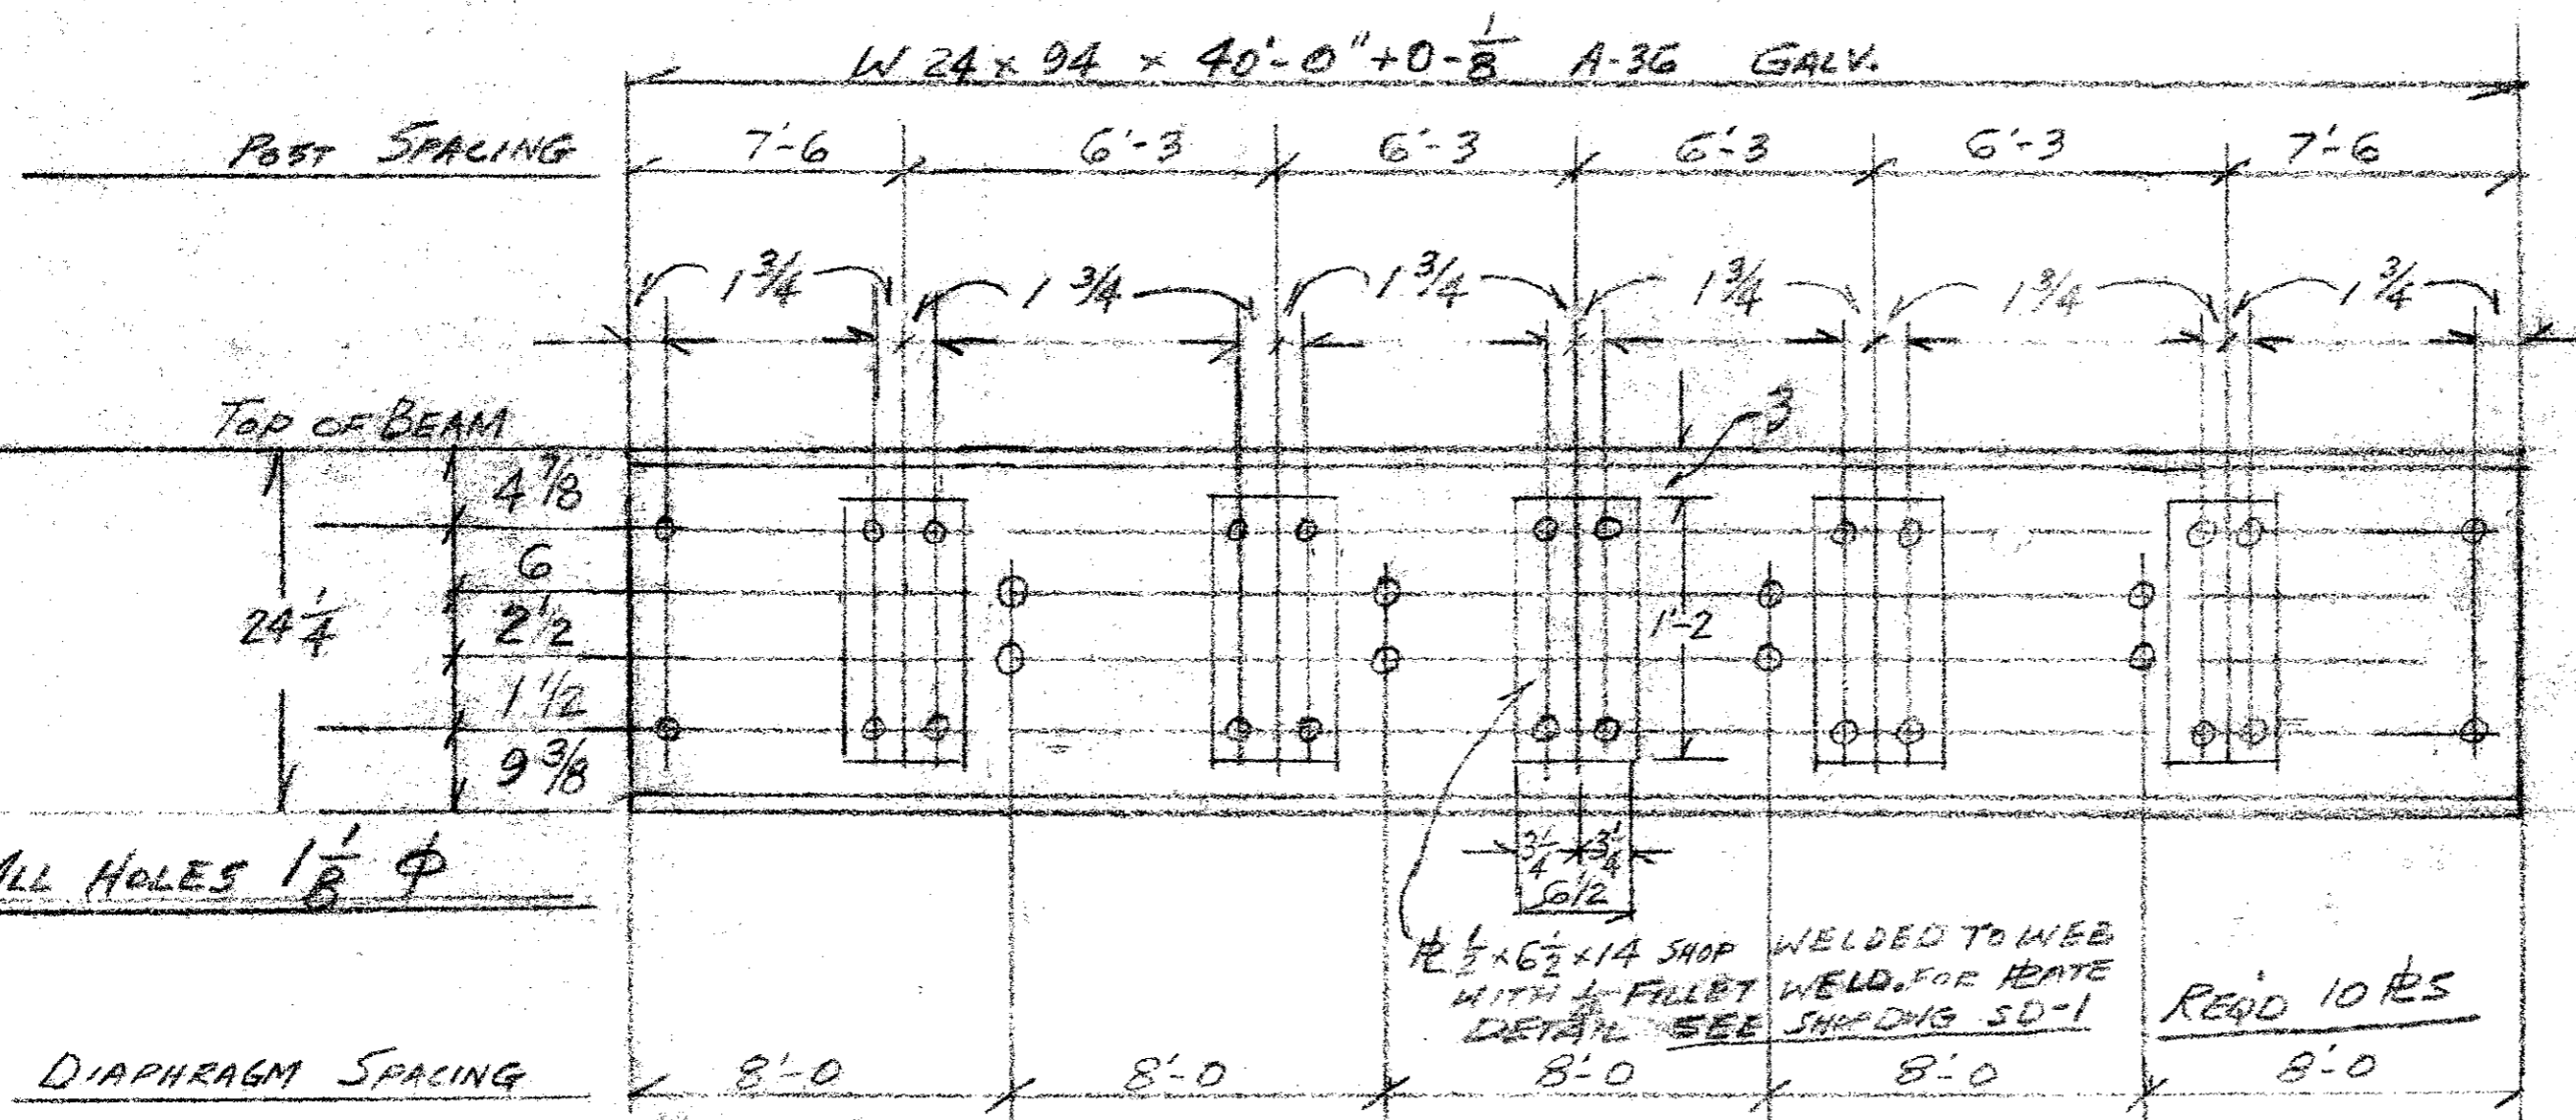 W 24 x 94 x 40'-0" +0-1/8 A-36 GALV.
POST SPACING 7'-6 6'-3 6'-3 6'-3 6'-3 7'-6
1 3/4 1 3/4 1 3/4 1 3/4 1 3/4 1 3/4
TOP OF BEAM
3
4 7/8
6
24 1/4
2 1/2
1'-2
1 1/2
9 3/8
ALL HOLES 1 1/8 Φ
3 1/4 3 1/4
6 1/2
PL 1/2 x 6 1/2 x 14 SHOP WELDED TO WEB
WITH FILLET WELD. FOR PLATE
DETAIL SEE SHOP DWG SD-1
REQ'D 10 PLS
DIAPHRAGM SPACING 8'-0 8'-0 8'-0 8'-0 8'-0